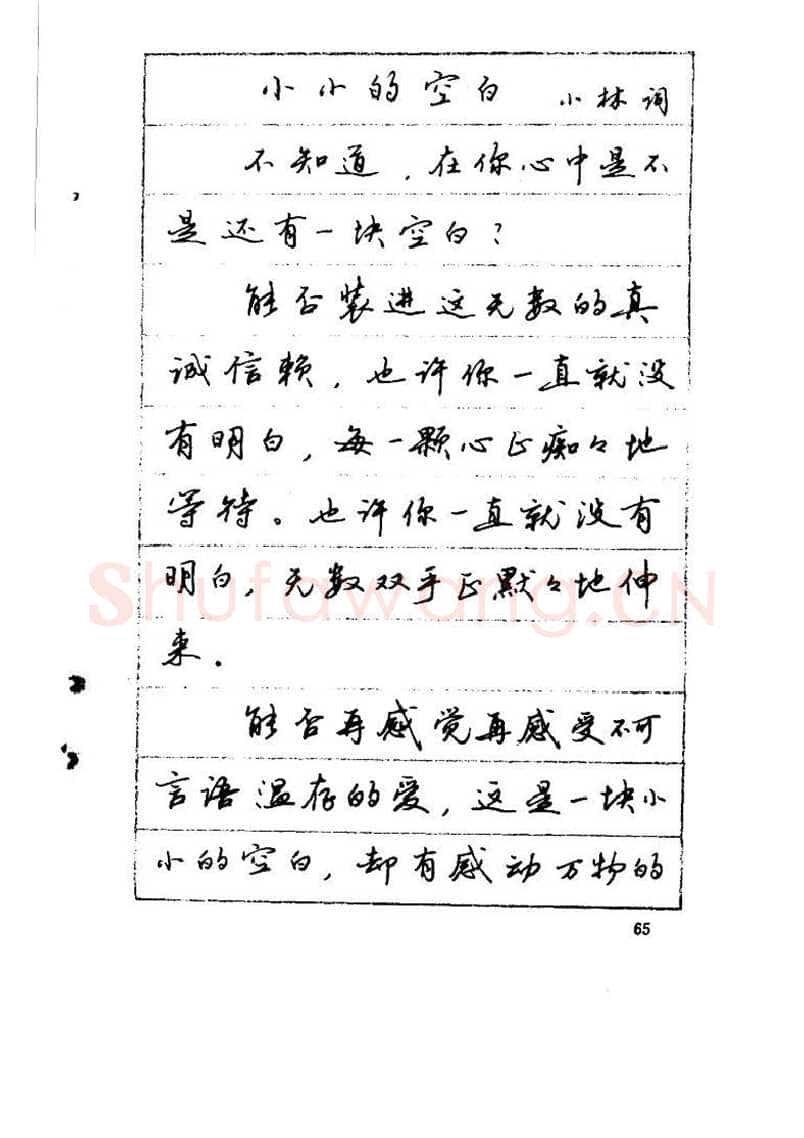 小小的空白 小林词
不知道，在你心中是不
是还有一块空白？
能否装进这无数的真
诚信赖，也许你一直就没
有明白，每一颗心正痴々地
等待。也许你一直就没有
明白，无数双手正默々地伸
来．
能否再感觉再感受不可
言语温存的爱，这是一块小
小的空白，却有感动万物的
65
Shufawang.CN